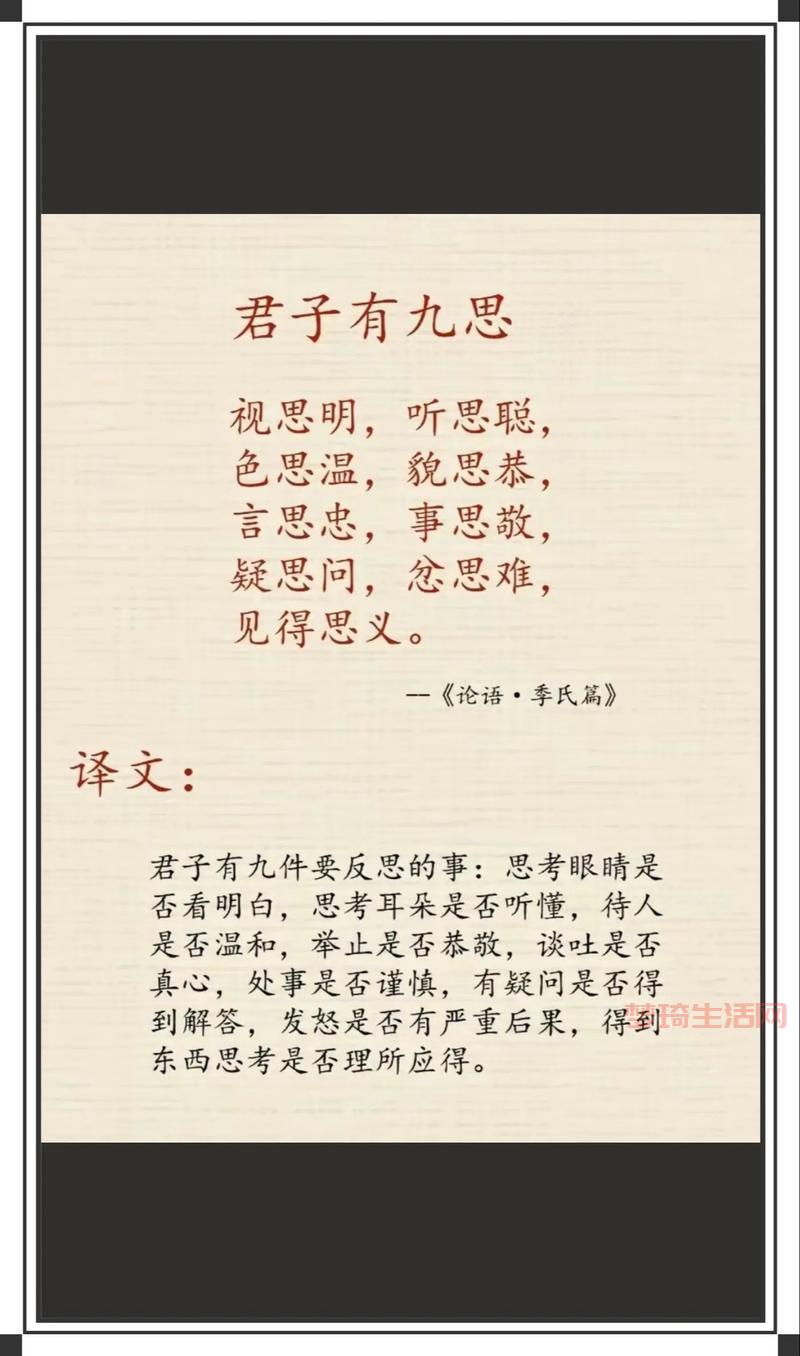 君子有九思
视思明，听思聪，
色思温，貌思恭，
言思忠，事思敬，
疑思问，忿思难，
见得思义。
--《论语·季氏篇》
译文：
君子有九件要反思的事：思考眼睛是
否看明白，思考耳朵是否听懂，待人
是否温和，举止是否恭敬，谈吐是否
真心，处事是否谨慎，有疑问是否得
到解答，发怒是否有严重后果，得到
东西思考是否理所应得。
梦琦生活网